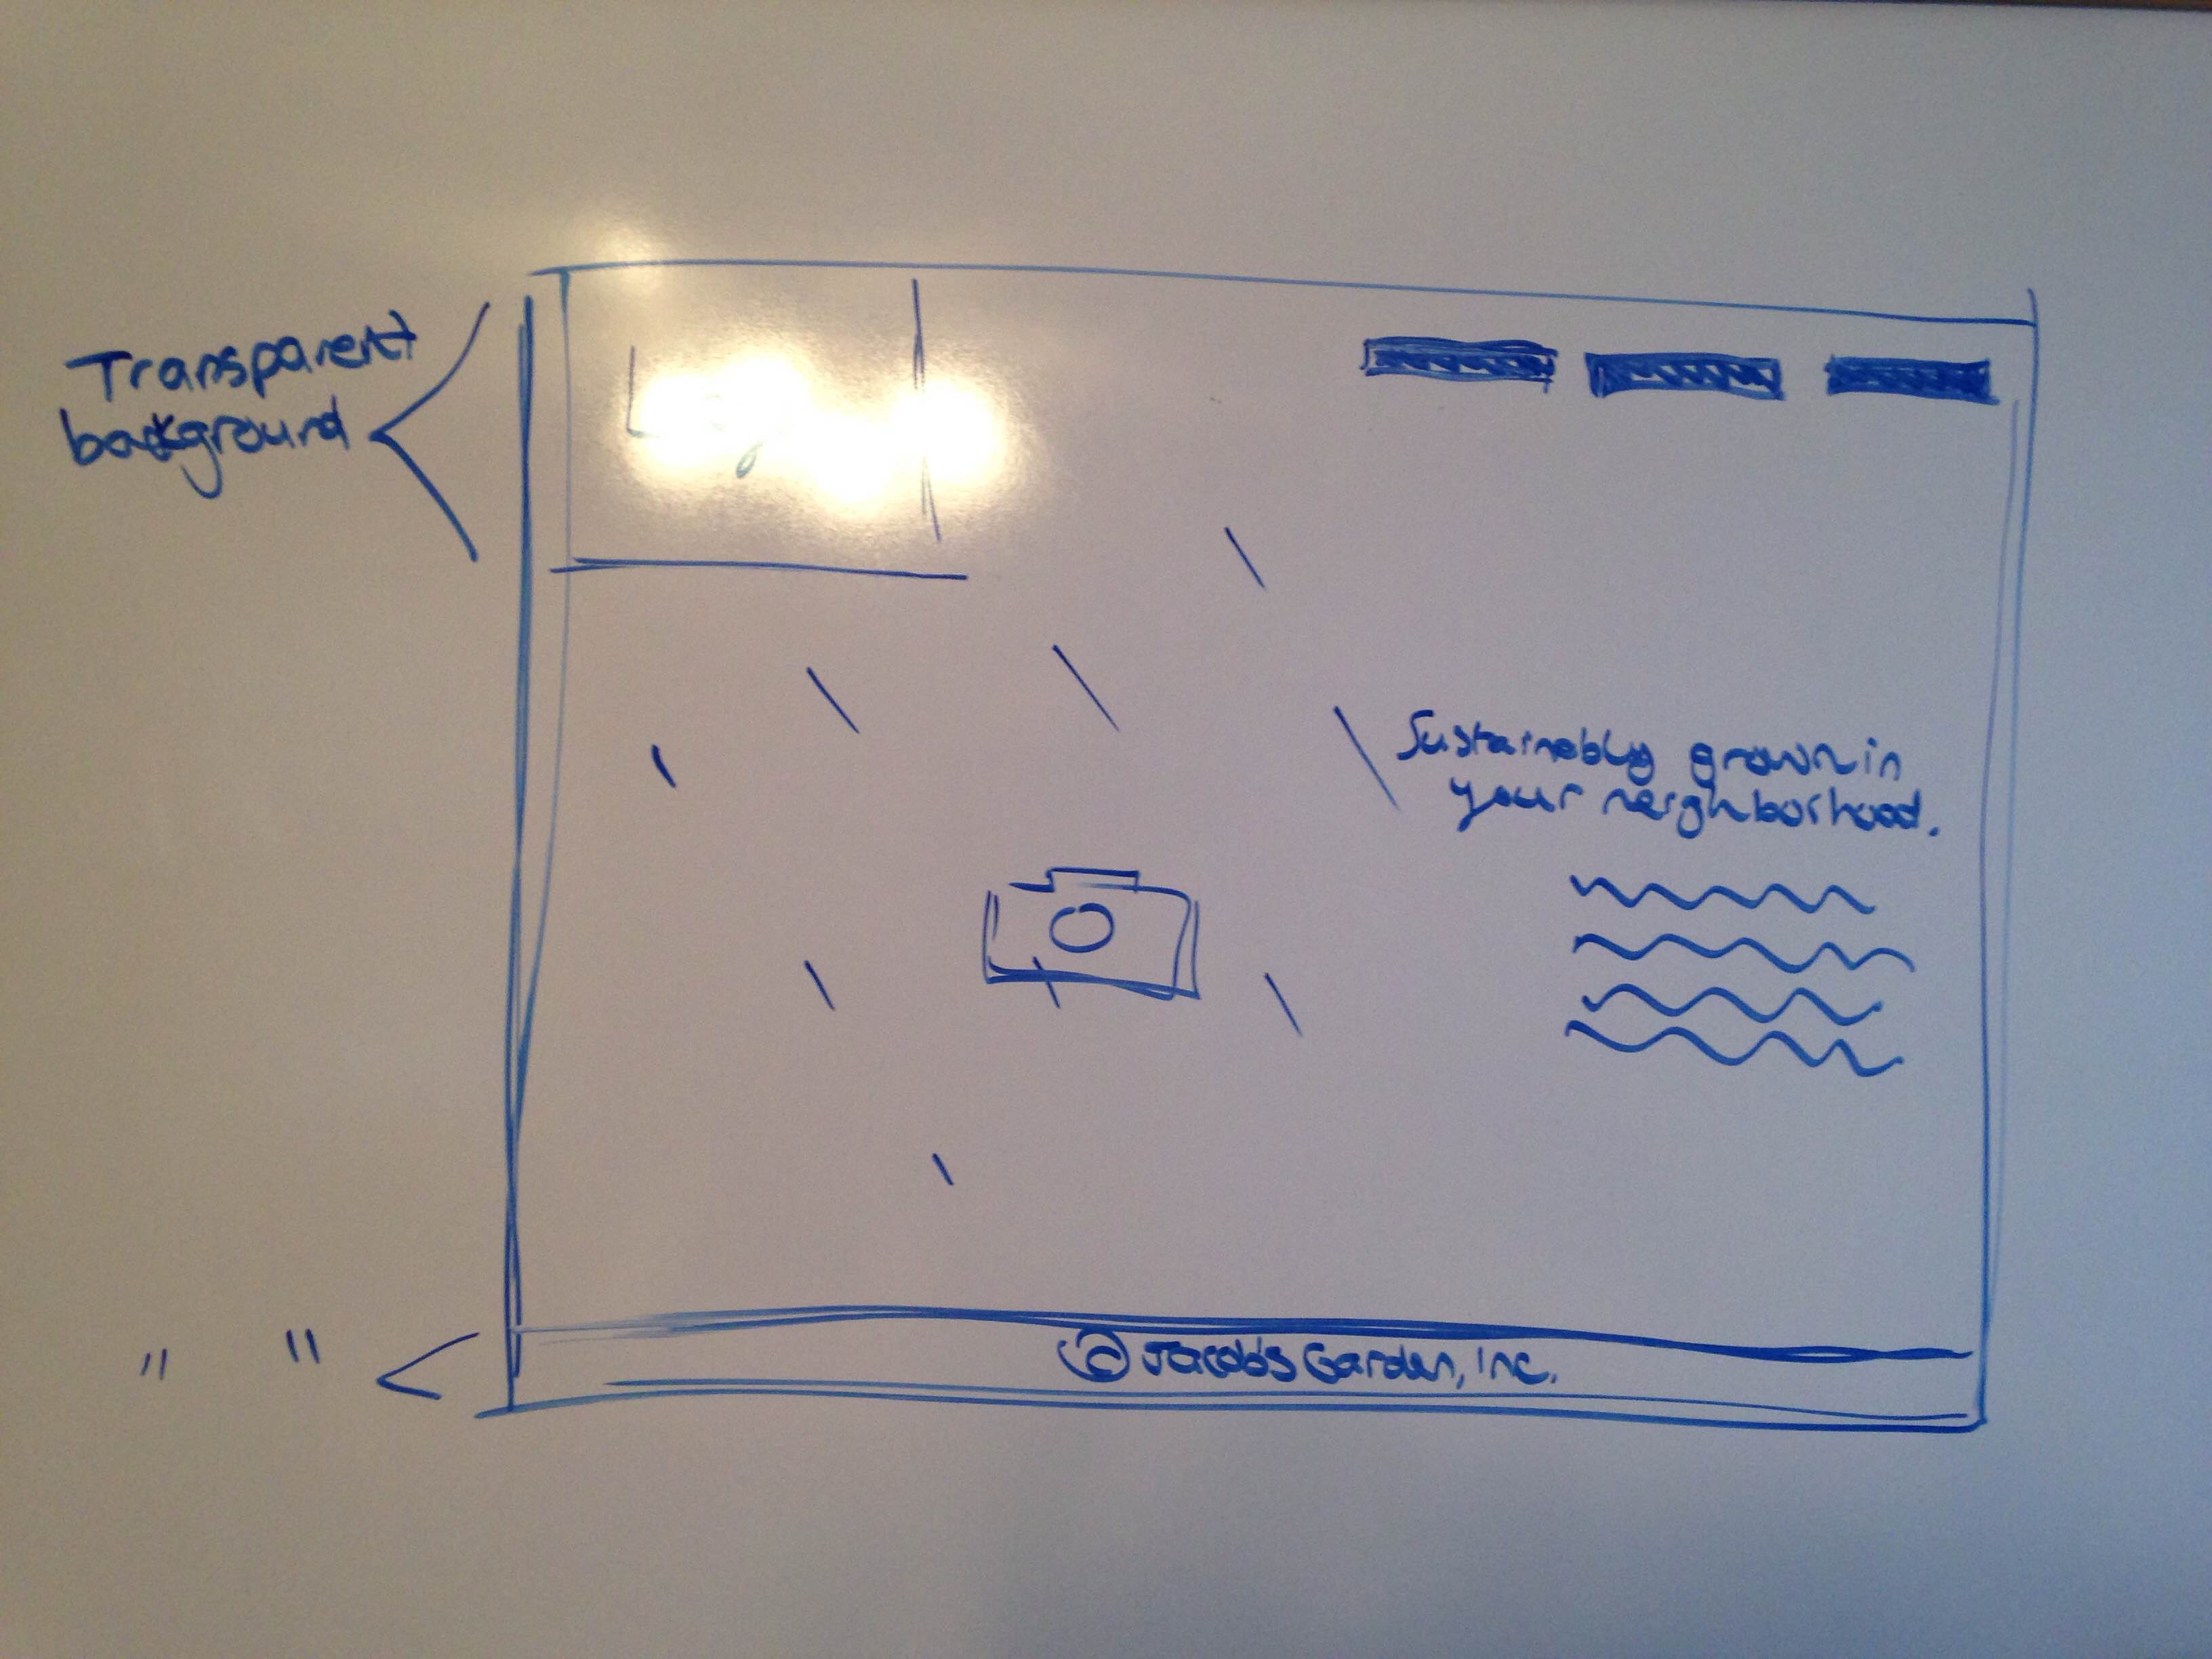 Transparent
background
Sustainably grown in
your neighborhood.
" "
© Jacob's Garden, Inc.